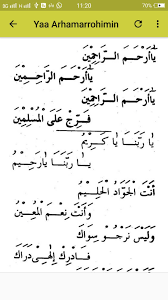 11:20
70%
Yaa Arhamarrohimin
يَاأَرْحَمَ الرَّاحِمِيْنَ
يَاأَرْحَمَ الرَّاحِمِيْنَ
يَاأَرْحَمَ الرَّاحِمِيْنَ
فَرِّجْ عَلَى الْمُسْلِمِيْنَ
يَا رَبَّنَا يَا كَرِيْمُ
يَا رَبَّنَا يَارَحِيْمُ
أَنْتَ الْجَوَادُ الْحَلِيْمُ
وَأَنْتَ نِعْمَ الْمُعِيْنُ
وَلَيْسَ نَرْجُوْ سِوَاكَ
فَادْرِكْ إِلٰهِيْ دَرَاكَ